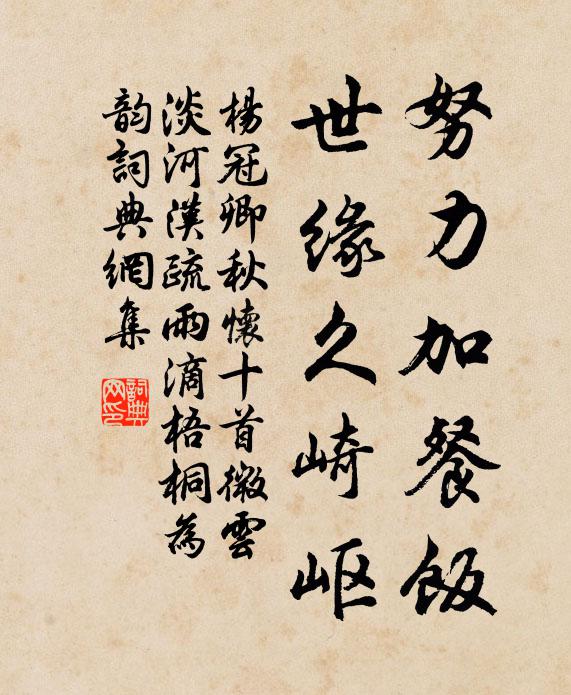 努力加餐飯
世緣久崎嶇
楊冠卿秋懷十首微雲
淡河漢疏雨滴梧桐為
韵詞典網集
詞典网印